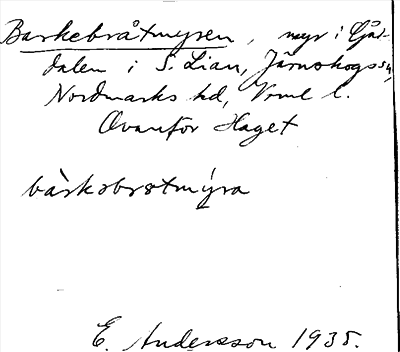 Barkebråtmyren, myr i Ljåt-
dalen i S. Lian, Järnskogs sn,
Nordmarks hd, Vrml l.
Ovanför Haget
bàrkəbrətmýra
E. Andersson 1935.